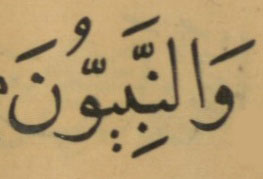 وَالنَّبِيُّونَ